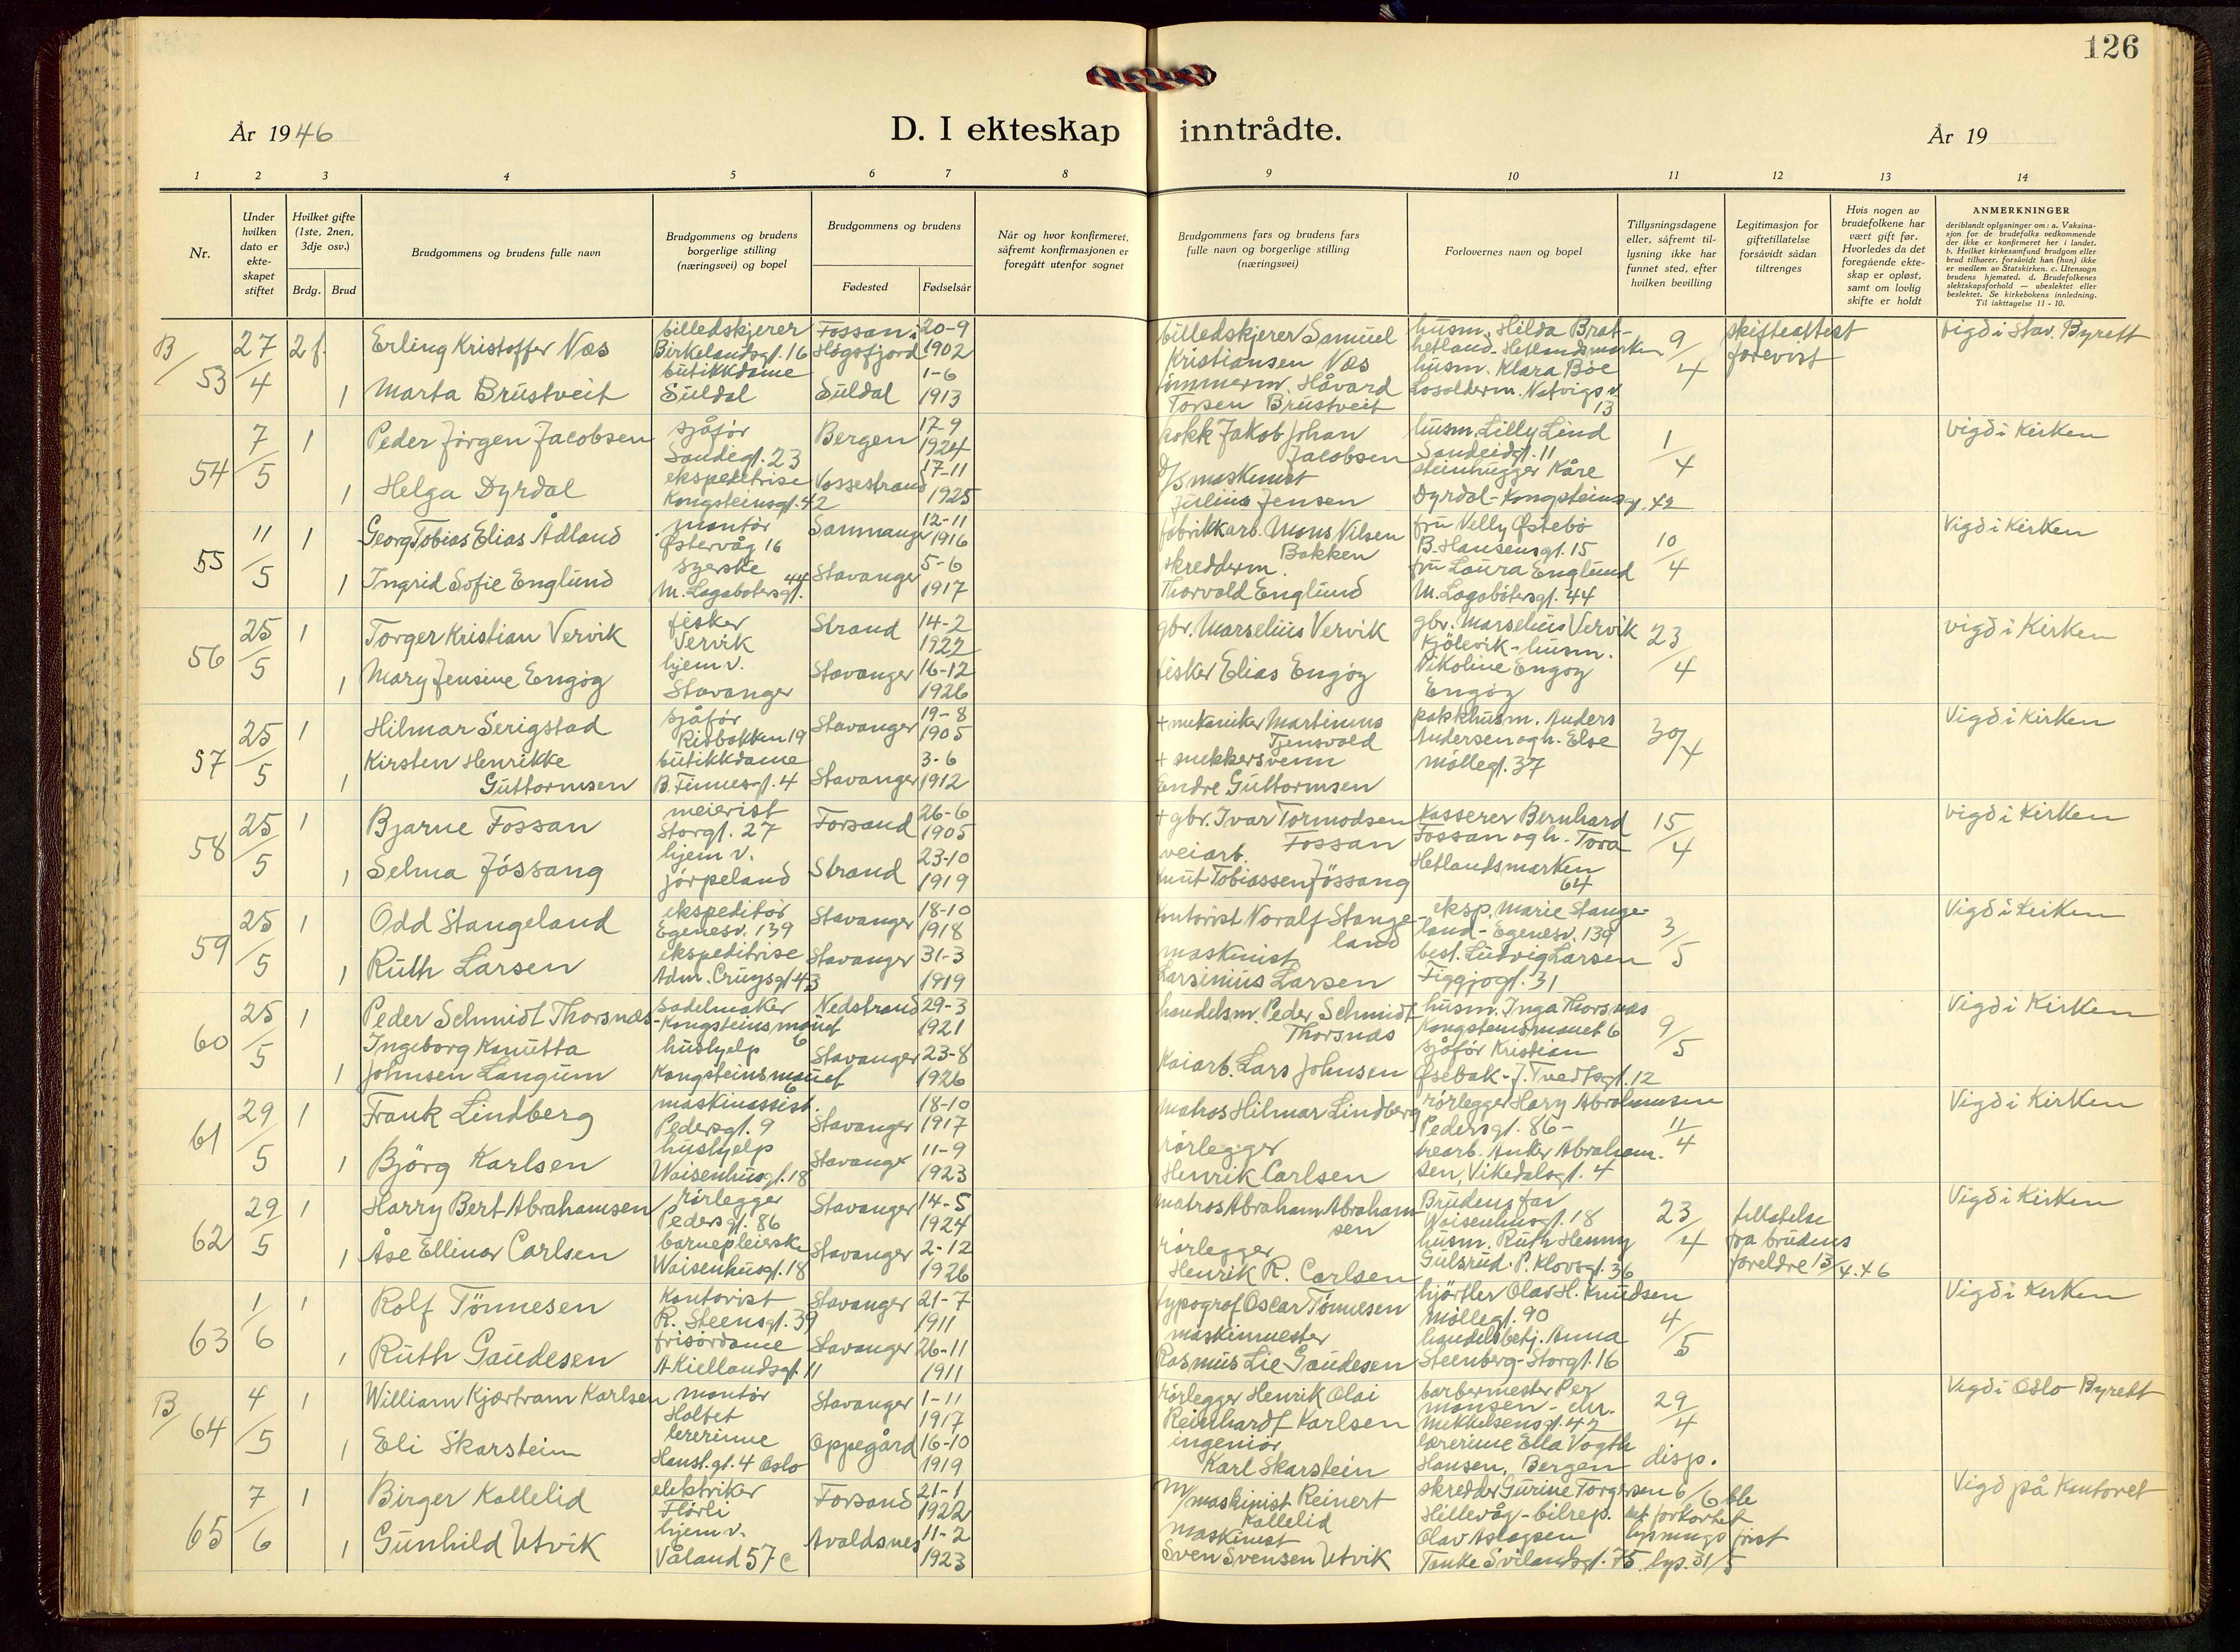 126
År 1946
D. I ekteskap inntrådte.
År 19
1 2 3 4 5 6 7 8 9 10 11 12 13 14
Nr.
Under hvilken dato er ekte-skapet stiftet
Hvilket gifte (1ste, 2nen, 3dje osv.)
Brdg. Brud
Brudgommens og brudens fulle navn
Brudgommens og brudens borgerlige stilling (næringsvei) og bopel
Brudgommens og brudens
Fødested
Fødselsår
Når og hvor konfirmeret, såfremt konfirmasjonen er foregått utenfor sognet
Brudgommens fars og brudens fars fulle navn og borgerlige stilling (næringsvei)
Forlovernes navn og bopel
Tillysningsdagene eller, såfremt til-lysning ikke har funnet sted, efter hvilken bevilling
Legitimasjon for giftetillatelse forsåvidt sådan tiltrenges
Hvis nogen av brudefolkene har vært gift før. Hvorledes da det foregående ekte-skap er opløst, samt om lovlig skifte er holdt
ANMERKNINGER
deriblandt oplysninger om: a. Vaksina-sjon for de brudefolks vedkommende der ikke er konfirmeret her i landet. b. Hvilket kirkesamfund brudgom eller brud tilhører, forsåvidt han (hun) ikke er medlem av Statskirken. c. Utensogn brudens hjemsted. d. Brudefolkenes slektskapsforhold — ubeslektet eller beslektet. Se kirkebokens innledning. Til iakttagelse 11 - 10.
B/ 53 27/4 2 f. Erling Kristoffer Næs billedskjerer Birkelandsgt. 16 Fossan i Høgsfjord 20-9 1902 billedskjerer Samuel Kristiansen Næs husm. Hilda Brat-hetland - Hetlandsmarken 9/4 skifteattest forevist vigd i Stav. Byrett
1 Marta Brüstveit butikkdame Suldal Suldal 1-6 1913 tømmerm. Håvard Torsen Brüstveit husm. Klara Bøe Losolderm. Natvigs v. 13
54 7/5 1 Peder Jørgen Jacobsen sjåfør Sandeidgt. 23 Bergen 17-9 1924 kokk Jakob Johan Jacobsen husm. Lilly Lind Sandeidgt. 11 1/4 vigd i Kirken
1 Helga Dyrdal ekspeditrise Kongsteinsgt. 42 Vossestrand 17-11 1925 D/S maskinist Julius Jensen steinhugger Kåre Dyrdal - Kongsteinsg. 42
55 11/5 1 Georg Tobias Elias Ådland montør Østervåg 16 Samnanger 12-11 1916 fabrikkarb. Mons Nilsen Bakken fru Nelly Østebø B. Hansensgt. 15 10/4 Vigd i Kirken
1 Ingrid Sofie Englund syerske M. Lagabøtersgt. 44 Stavanger 5-6 1917 skredderm. Thorvald Englund fru Laura Englund M. Lagabøtersgt. 44
56 25/5 1 Torger Kristian Vervik fisker Vervik Strand 14-2 1922 gbr. Marselius Vervik gbr. Marselius Vervik Kjölevik - husm. 23/4 vigd i Kirken
1 Mary Jensine Engøy hjem v. Stavanger Stavanger 16-12 1926 fisker Elias Engøy Nikoline Engøy Engøy
57 25/5 1 Hilmar Serigstad sjåfør Risbakken 19 Stavanger 19-8 1905 + mekaniker Martinius Tjensvold pakkhusm. Anders Andersen og h. Else Møllegt. 37 30/4 Vigd i Kirken
1 Kirsten Henrikke Guttormsen butikkdame B. Finnesgt. 4 Stavanger 3-6 1912 + snekkersvenn Endre Guttormsen
58 25/5 1 Bjarne Fossan meierist Storgt. 27 Forsand 26-6 1905 + gbr. Ivar Tormodsen Fossan Kasserer Bernhard Fossan og h. Tora Hetlandsmarken 64 15/4 vigd i Kirken
1 Selma Jössang hjem v. Jörpeland Strand 23-10 1919 veiarb. Knut Tobiassen Jössang
59 25/5 1 Odd Stangeland ekspeditør Egenesv. 139 Stavanger 18-10 1918 kontorist Noralf Stangeland eksp. Marie Stange-land - Egenesv. 139 3/5 Vigd i Kirken
1 Ruth Larsen ekspeditrise Adm. Cruysgt 43 Stavanger 31-3 1919 maskinist Larsinius Larsen best. Ludvig Larsen Figgjogt. 31
60 25/5 1 Peder Schmidt Thorsnæs sadelmaker Kongsteinsmauet 6 Nedstrand 29-3 1921 handelsm. Peder Schmidt Thorsnæs husm. Inga Thorsnæs Kongsteinsmauet 6 9/5 Vigd i Kirken
1 Ingeborg Kanutta Johnsen Langum hushjelp Kongsteinsmauet 6 Stavanger 23-8 1926 Kaiarb. Lars Johnsen sjåfør Kristian Øsebak - J. Tvedtsgt. 12
61 29/5 1 Frank Lindberg maskinassist. Pedersgt. 9 Stavanger 18-10 1917 matros Hilmar Lindberg rørlegger Hary Abrahamsen Pedersgt. 86 - 11/4 Vigd i Kirken
1 Björg Karlsen hushjelp Waisenhusgt. 18 Stavanger 11-9 1923 rørlegger Henrik Carlsen trearb. Anker Abraham.sen, Vikedalsgt. 4
62 29/5 1 Harry Bert Abrahamsen rørlegger Pedersgt. 86 Stavanger 14-5 1924 matros Abraham Abrahamsen Brudens far Waisenhusgt. 18 23/4 tillatelse fra brudens foreldre 13/4.46 Vigd i Kirken
1 Åse Ellinor Carlsen barnepleierske Waisenhusgt. 18 Stavanger 2-12 1926 rørlegger Henrik R. Carlsen husm. Ruth Henny Gulsrud. P. Klovsgt. 36
63 1/6 1 Rolf Tönnesen Kontorist R. Steensgt. 39 Stavanger 21-7 1911 typograf Oscar Tönnesen Olav H. Knudsen Møllegt. 90 4/5 Vigd i Kirken
1 Ruth Gaudesen frisördame A. Kiellandsgt. 11 Stavanger 26-11 1911 maskinmester Rasmus Lie Gaudesen handelsbetj. Anna Steenberg - Storgt. 16
B/ 64 4/5 1 William Kjærtram Karlsen montør Holtet Stavanger 1-11 1917 rørlegger Henrik Olai Reinhardt Karlsen barbermester Per Monsen - chr. Mikkelsensgt. 42 29/4 disp. Vigd i Oslo Byrett
1 Eli Skarstein lærerinne Hanst.gt. 4 Oslo Oppegård 16-10 1919 ingeniør Karl Skarstein lærerinne Ella Vogth Hansen, Bergen
65 7/6 1 Birger Kallelid elektriker Flörli Forsand 21-1 1922 M/maskinist Reinert Kallelid skredder Gurine Torgersen Hillevåg - bilrep. 6/6 ble det forkortet lysnings frist lys. 31/5 Vigd på Kontoret
1 Gunhild Utvik hjem v. Våland 57 c Avaldsnes 11-2 1923 maskinist Sven Svensen Utvik Olav Aslagsen Tanke Svilandsgt. 75